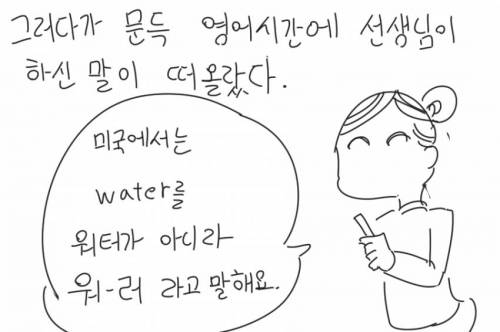 그러다가 문득 영어시간에 선생님이
하신 말이 떠올랐다.
미국에서는
water를
워터가 아니라
워-러 라고 말해요.